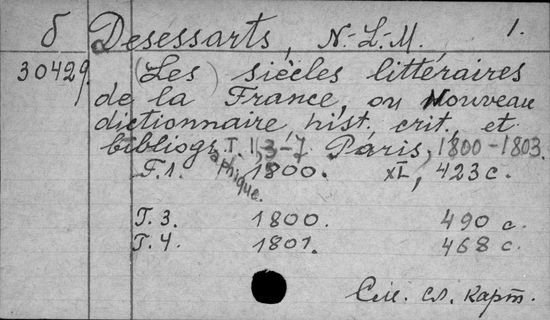 б Desessarts, N.-L.-M. 1.
30429. (Les) siècles littéraires
de la France, ou Nouveau
dictionnaire hist., crit., et
bibliographique. T. 1, 3-7 Paris, 1800-1803.
T.1. 1800. XL, 423 c.
T.3. 1800. 490 c.
T.4. 1801. 468 c.
См. сл. карт.